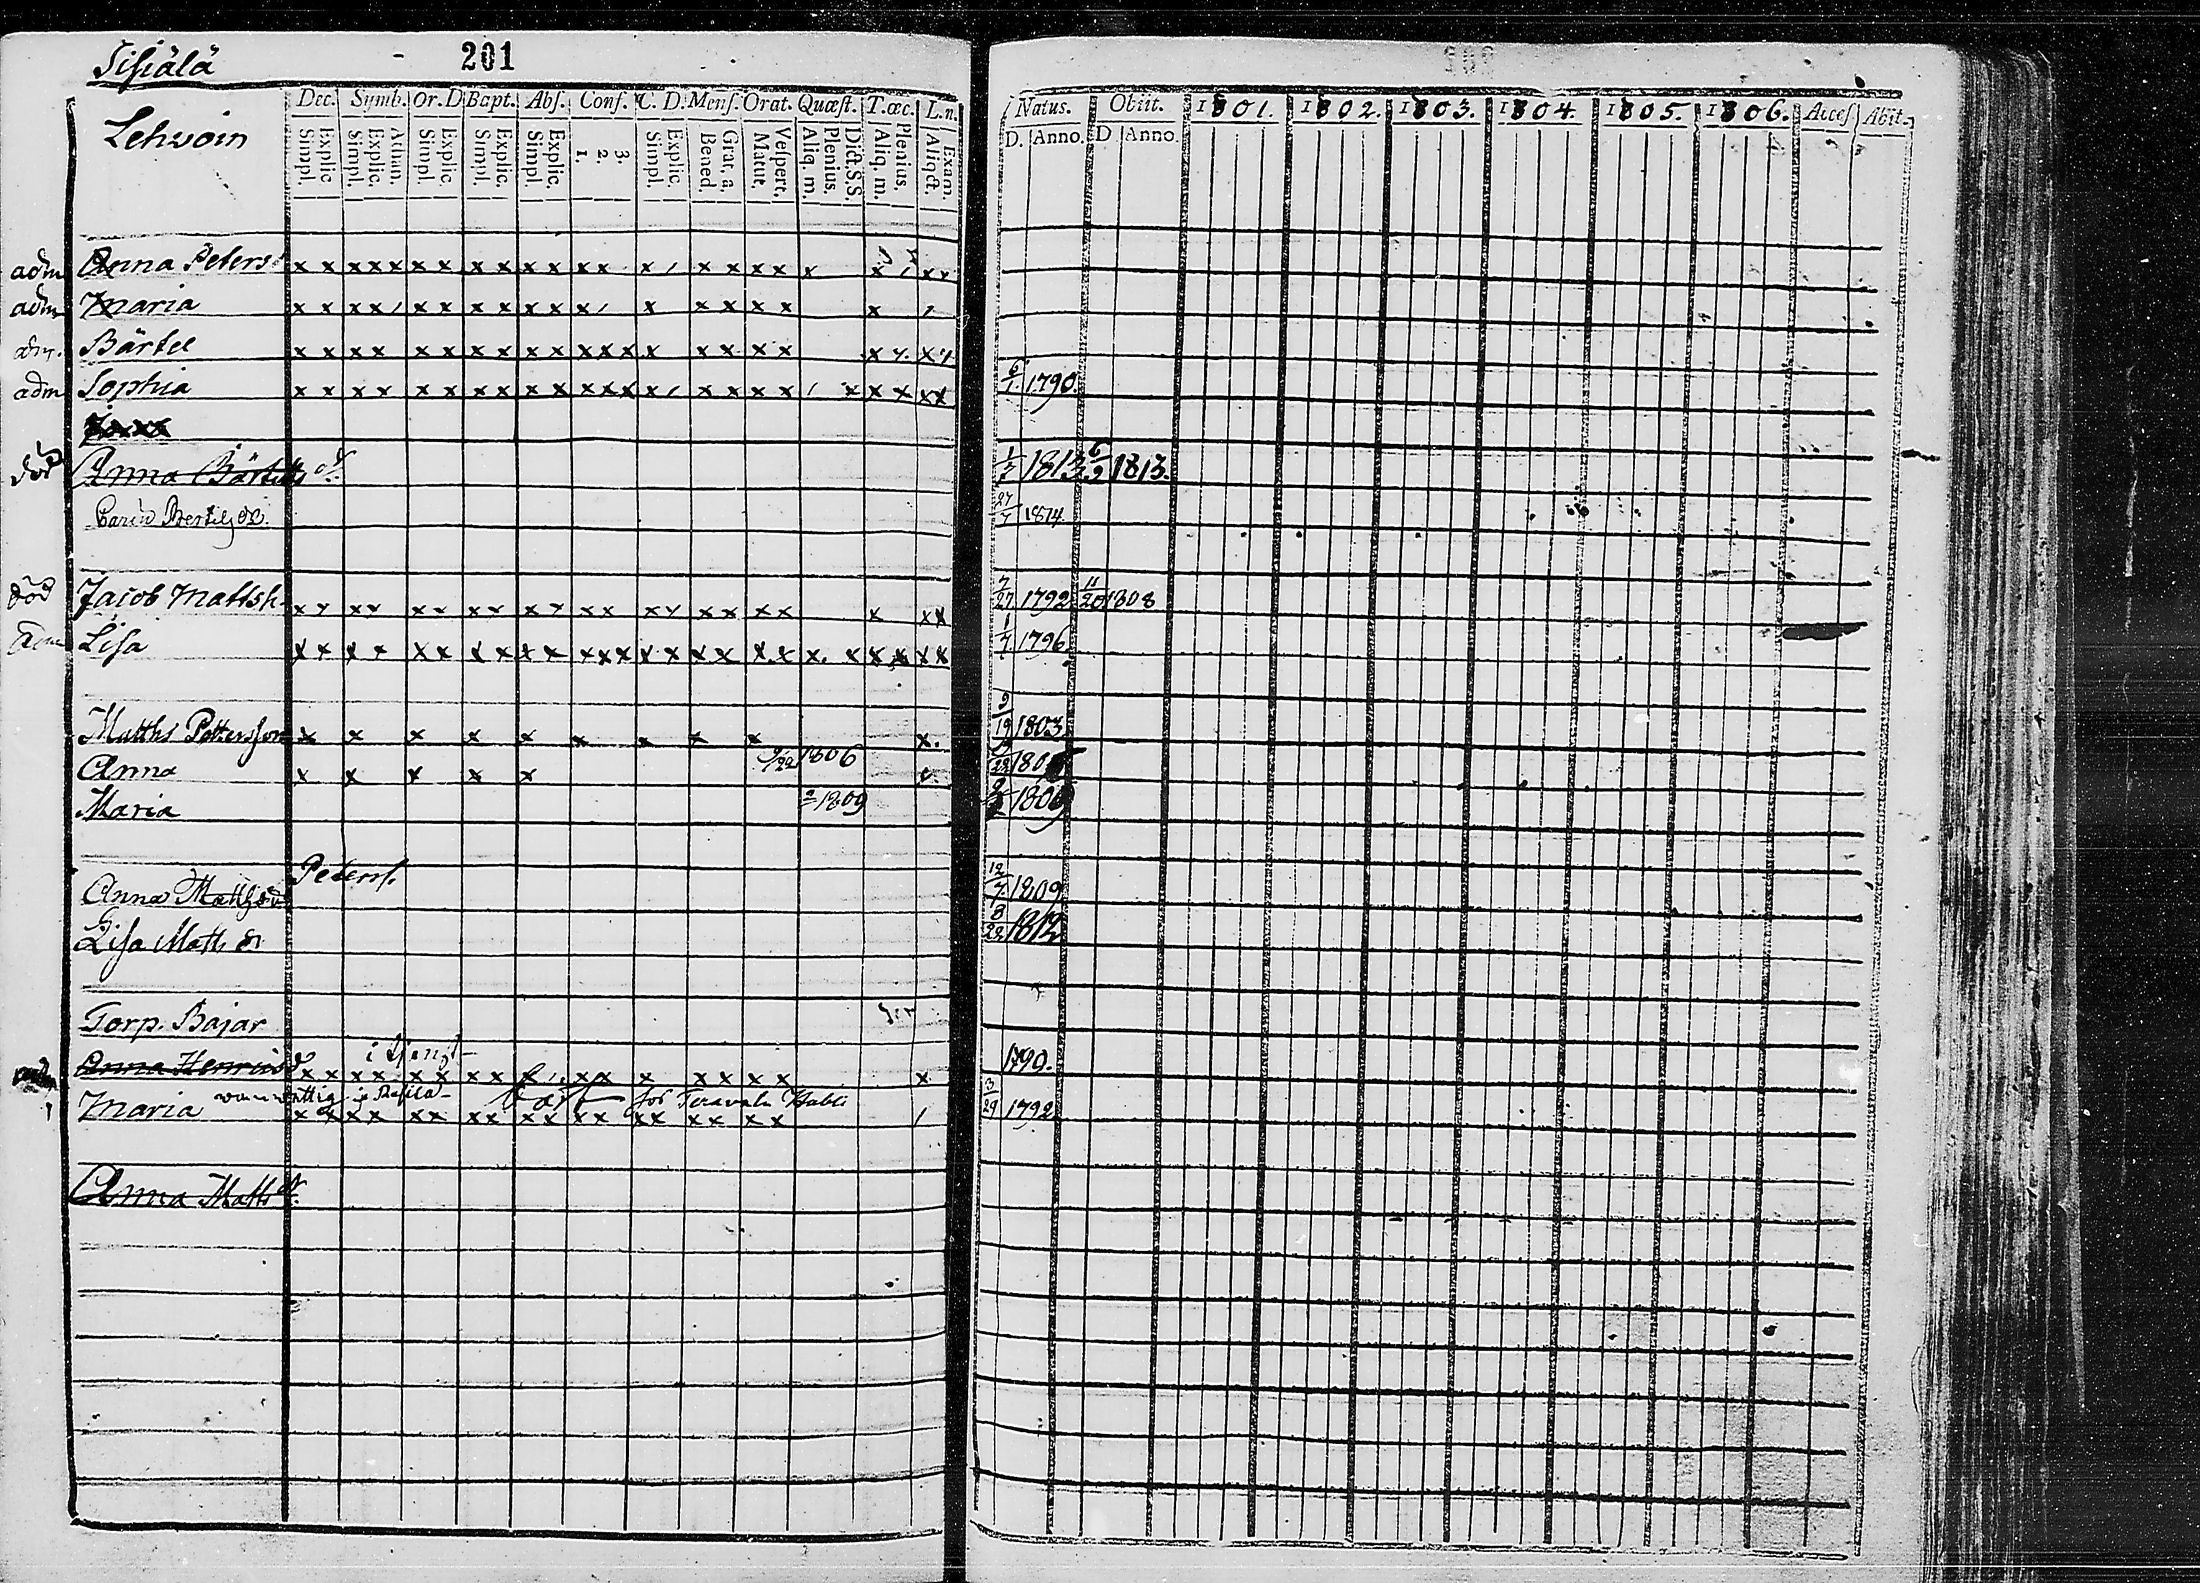 Sisiälä 201
Lehvoin
Dec. Symb. Or. D Bapt. Abs. Conf. C. D. Mens. Orat. Quæst. T. œc. L. n.
Simpl. Explic Simpl. Explic. Athan. Simpl. Explic. Simpl. Explic. Simpl. Explic. 1. 2. 3. Simpl. Explic. Bened. Grat. a. Matut. Vespert. Aliq. m. Plenius. Dict. S. S. Aliq. m. Plenius. Aliqđ. Exam.
Natus. Obiit. 1801. 1802. 1803. 1804. 1805. 1806. Acces. Abit.
D. Anno. D Anno
adm Anna Peters
adm Maria
adm. Bärtel
adm Sophia 6/1. 1790.
död Anna Bärtels dr. 1813 6/3 1813.
Carin Bertils dr. 27/7 1814
död Jacob Matts 7/27 1792 11/20 1808
adm Lisa 1/7 1796
Matths Pettersson 9/19 1803
Anna 1806 /22 180
Maria 1809 1809
Peters.
Anna Matts dr 12/7 1809
Lisa Matts dr 8/22 1812
Torp. Bajar
i tjenst
Anna Henrics d 1790.
Maria 3/29 1792
Anna Matts dr.